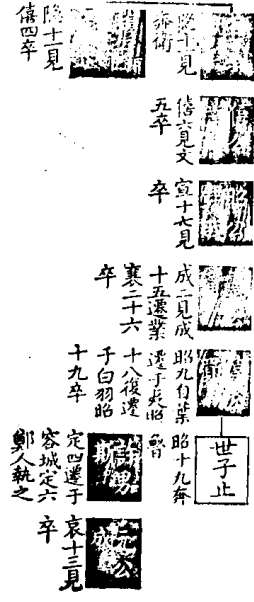 隱十一見
奔衛
隱十一見
僖四卒
僖六見文
五卒
宣十七見
卒
成二見成
十五遷葉
襄二十六
卒
昭九自葉
遷于夷昭
十八復遷
于白羽昭
十九卒
世子止
昭十九奔
晉
許男
斯
定四遷于
容城定六
鄭人執之
元公
成
哀十三見
卒